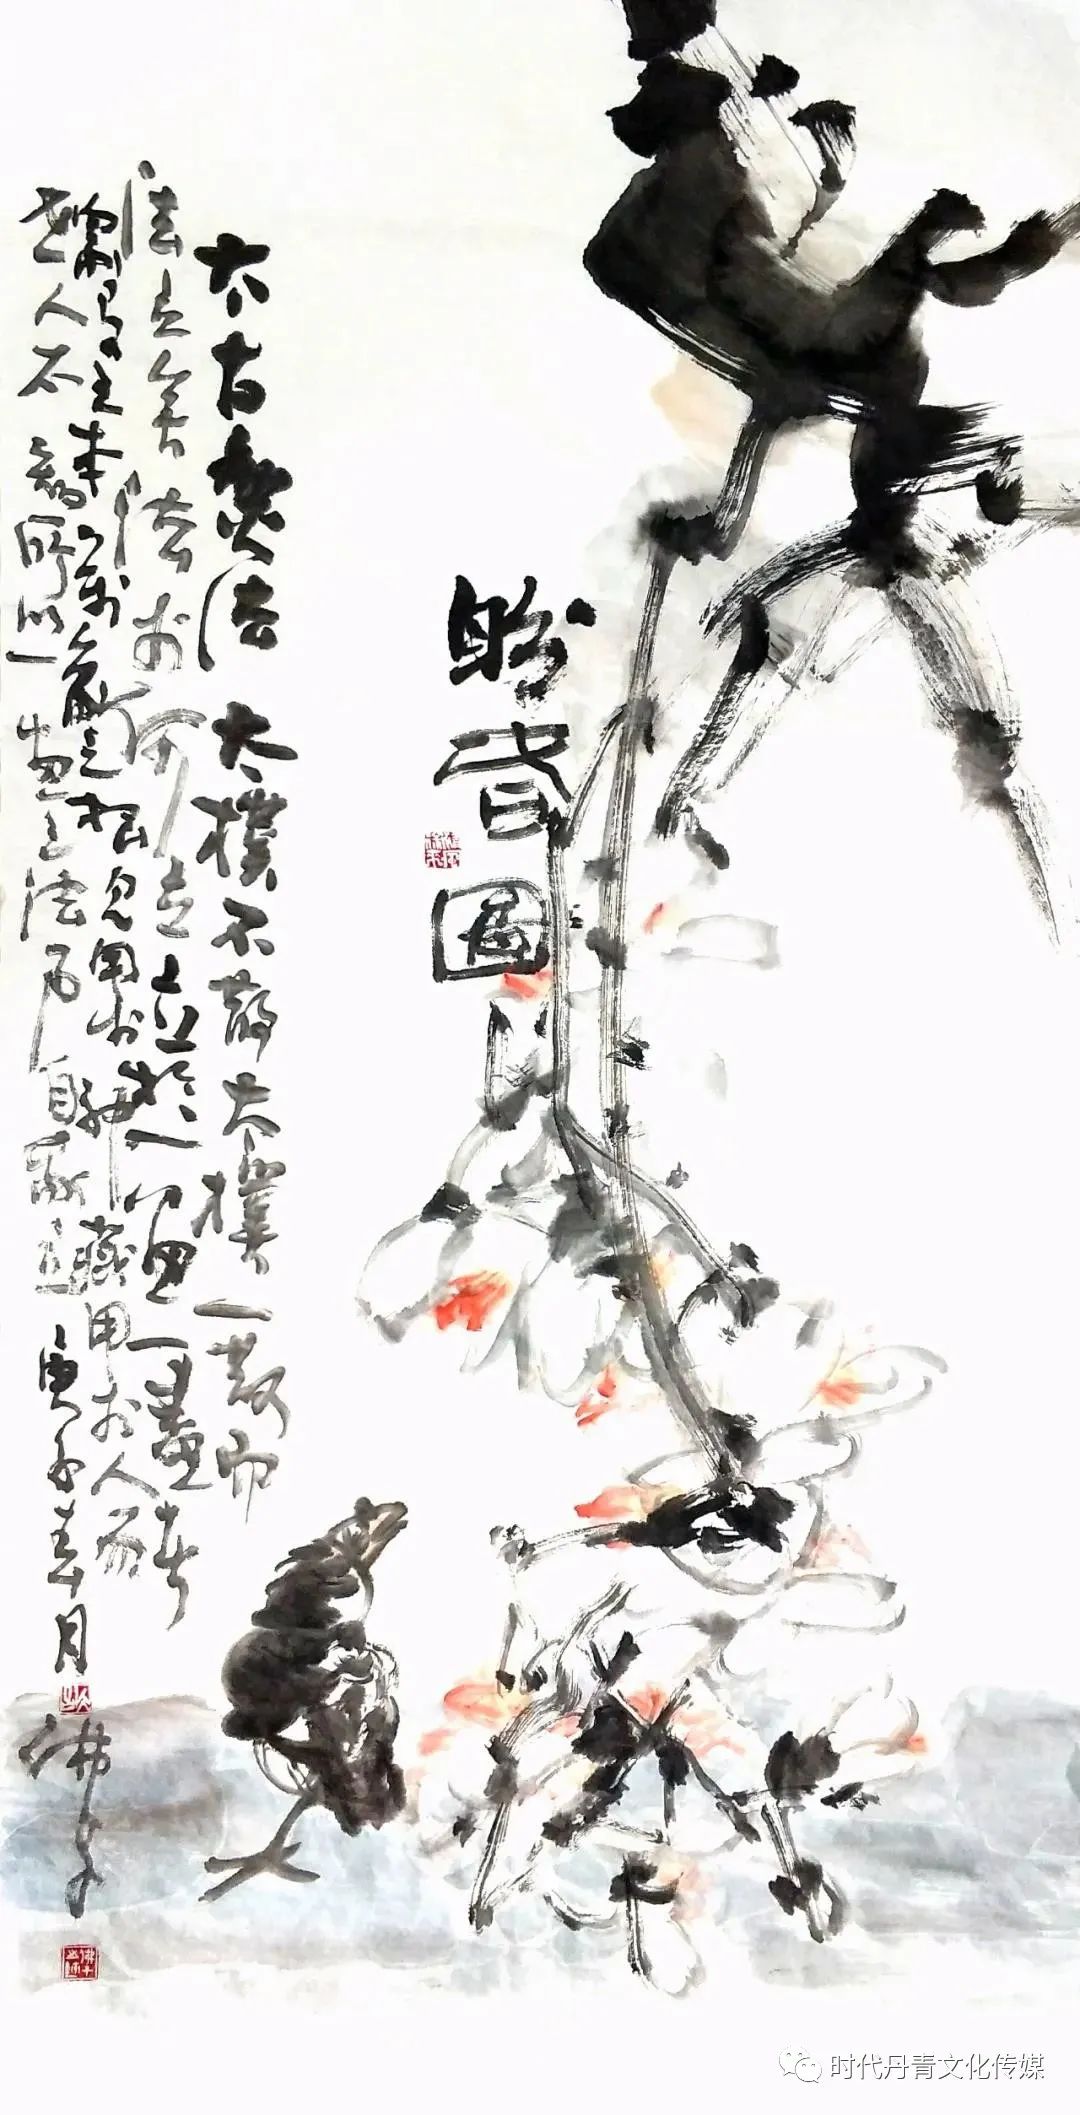 盼春圖
太古無法太樸不散太樸一散而
法立矣法於何立立於一畫一畫者
眾有之本萬象之根見用於神藏用於人而
世人不知所以一畫之法乃自我立庚子春月
时代丹青文化传媒